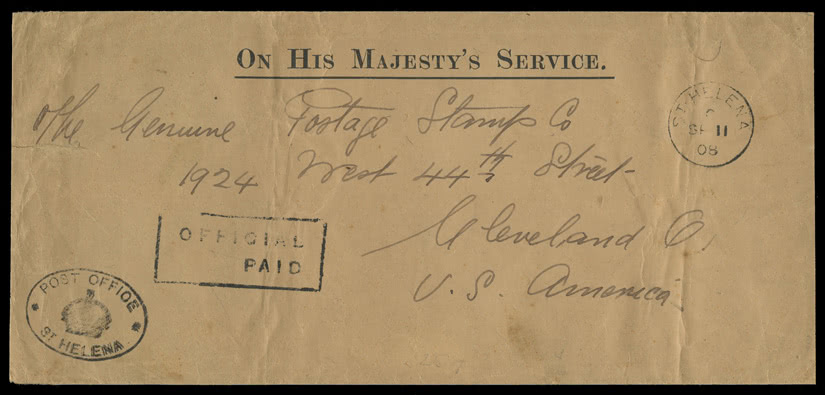 ON HIS MAJESTY'S SERVICE.
ST HELENA
C
SP 11
08
The Genuine Postage Stamp Co
1924 West 44th Street
Cleveland O,
U. S. America
OFFICIAL
PAID
POST OFFICE
ST HELENA.